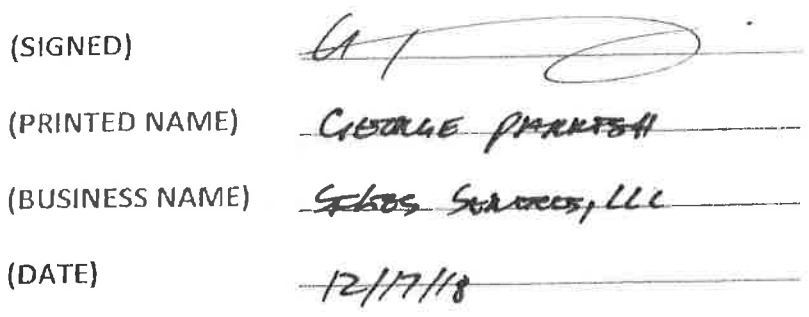 (SIGNED)
(PRINTED NAME) GEORGE PARRISH
(BUSINESS NAME) SERVICES, LLC
(DATE) 12/17/18